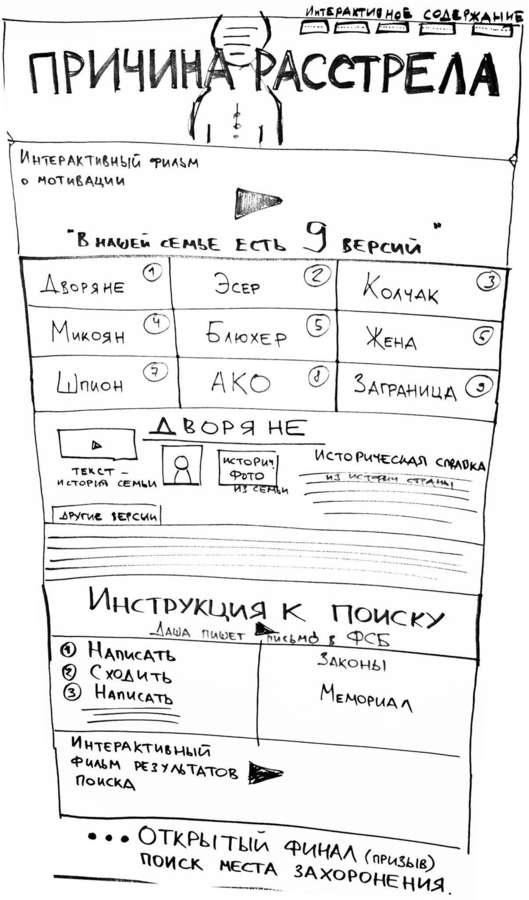 Интерактивное содержание
ПРИЧИНА РАССТРЕЛА
Интерактивный фильм
о мотивации
"В нашей семье есть 9 версий"
Дворяне 1
Эсер 2
Колчак 3
Микоян 4
Блюхер 5
Жена 6
Шпион 7
АКО 8
Заграница 9
Дворяне
текст –
история семьи
историч.
фото
из семьи
Историческая справка
из истории страны
другие версии
Инструкция к поиску
Даша пишет письмо в ФСБ
1 Написать
2 Сходить
3 Написать
Законы
Мемориал
Интерактивный
фильм результатов
поиска
... Открытый финал (призыв)
поиск места захоронения.